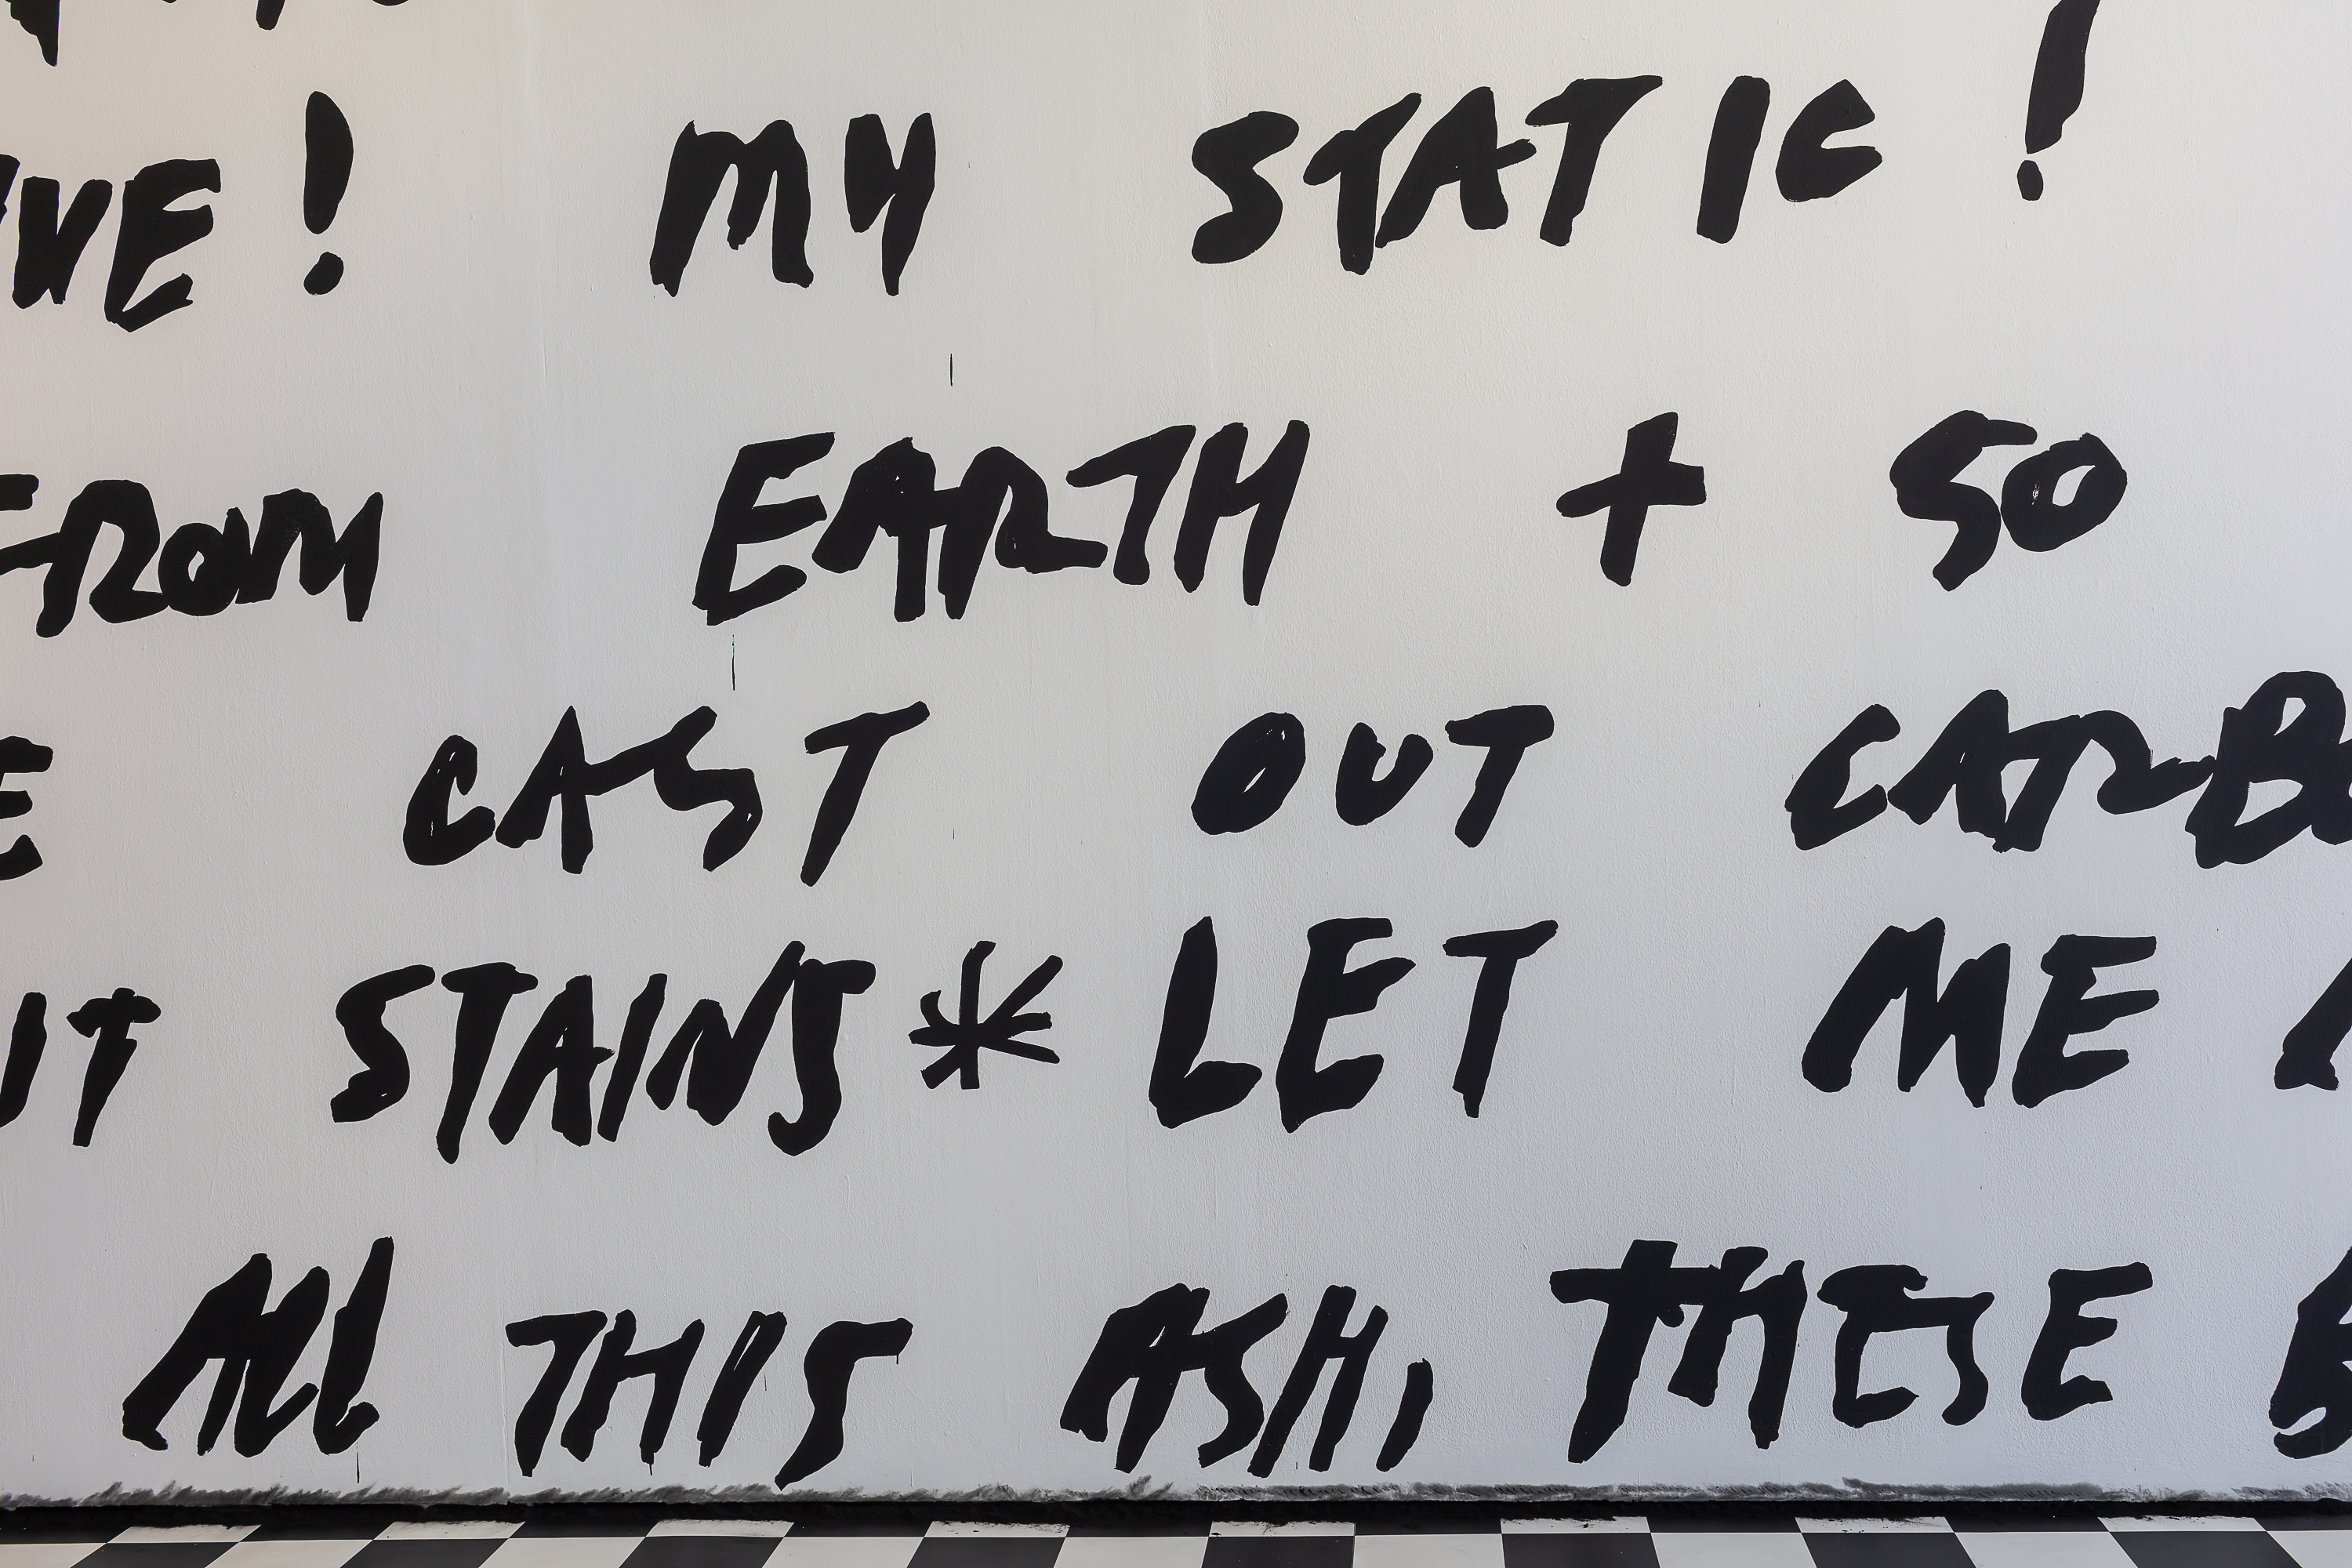 ! MY STATIC !
FROM EARTH + SO
CAST OUT
IT STAINS * LET ME
All THIS ASH, THESE